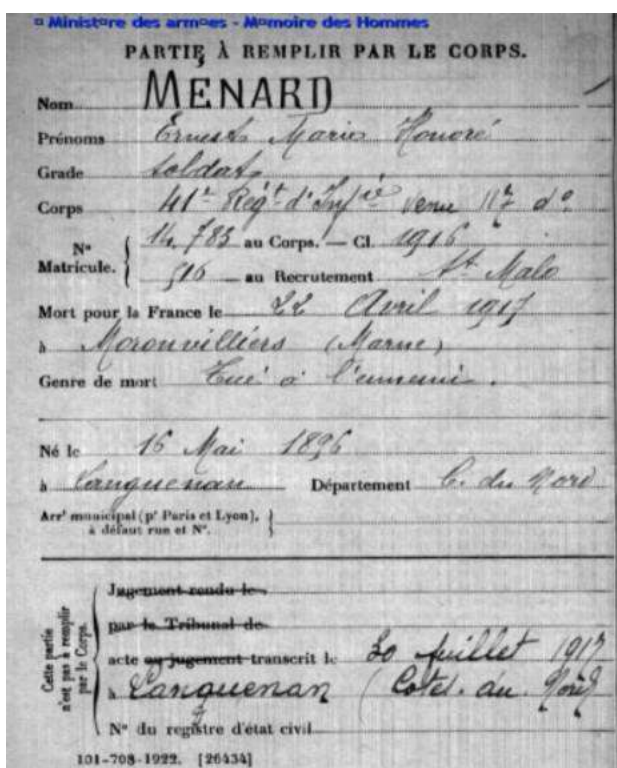 ¤ Minist¤re des arm¤es - M¤moire des Hommes
PARTIE À REMPLIR PAR LE CORPS.
Nom MENARD
Prénoms Ernest Marie Honoré
Grade soldat
Corps 41e Regt d'Infie venu 117 do
No Matricule. { 14.783 au Corps. — Cl. 1916
516 au Recrutement St Malo
Mort pour la France le 22 Avril 1917
à Moronvilliers (Marne)
Genre de mort Tué à l'ennemi.
Né le 16 Mai 1896
à Languenan Département C. du Nord
Arrt municipal (pr Paris et Lyon), }
à défaut rue et No.
Cette partie n'est pas à remplir par le Corps.
Jugement rendu le
par le Tribunal de
acte ou jugement transcrit le 30 Juillet 1917
à Languenan (Côtes. du Nord)
No du registre d'état civil
101-708-1922. [26434]